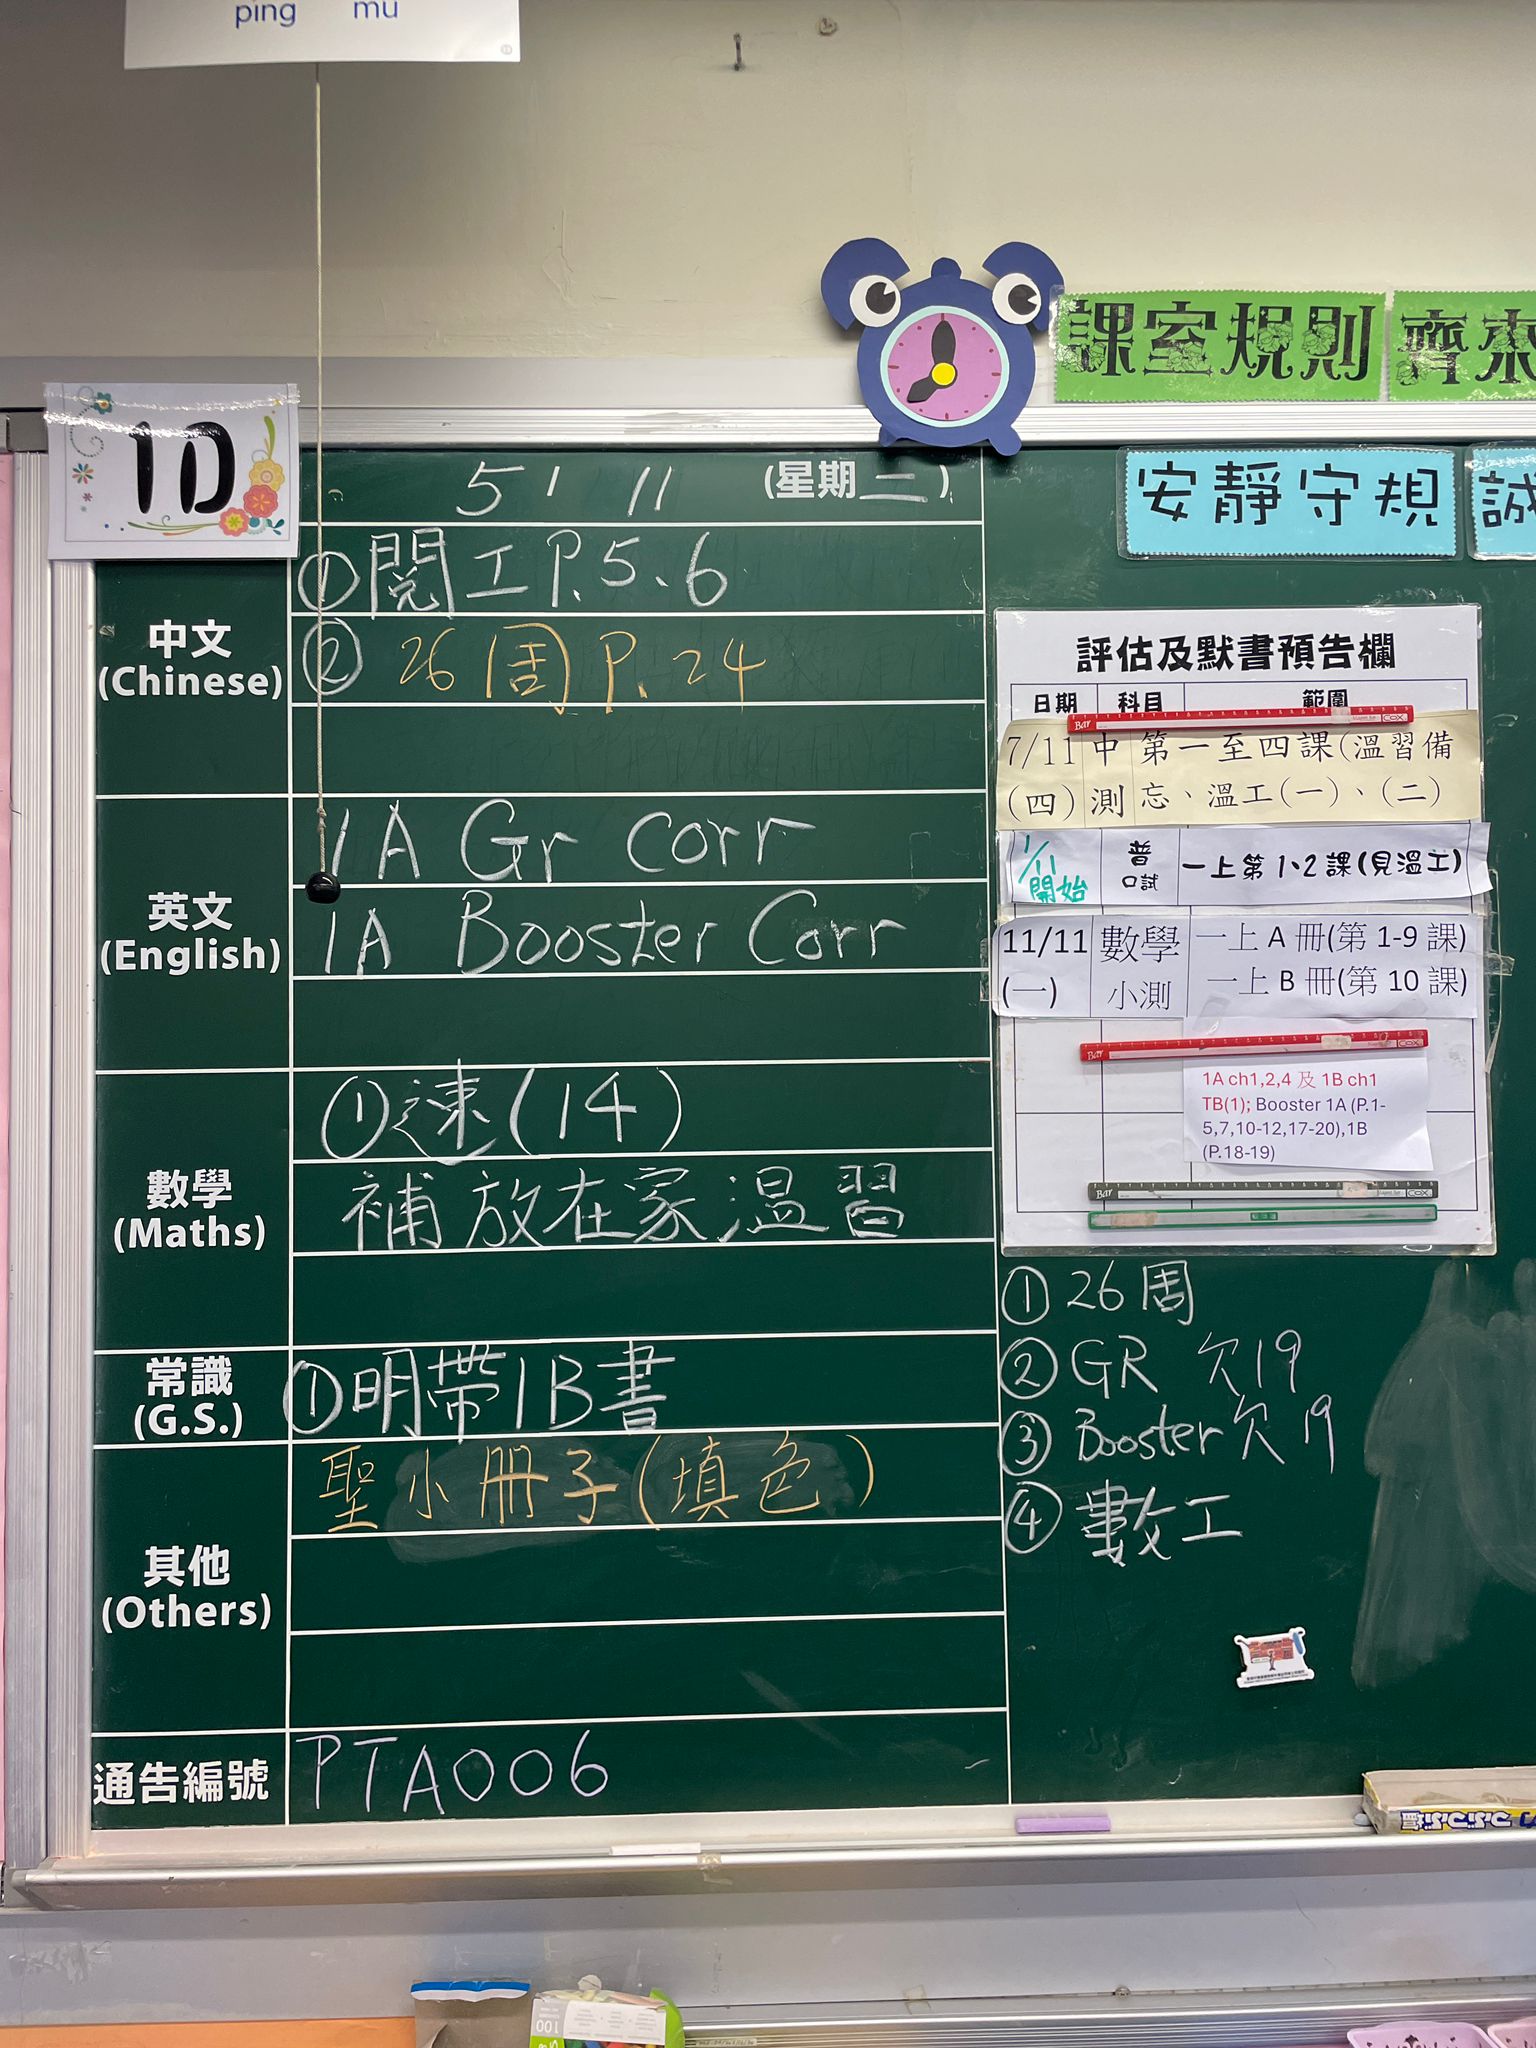 ping mu
課室規則 齊來
1D
5 / 11 (星期二)
安靜守規 誠
中文
(Chinese)
① 閱工 P.5、6
② 26周 P.24
英文
(English)
1A Gr Corr
1A Booster Corr
數學
(Maths)
① 速(14)
補放在家溫習
常識
(G.S.)
① 明帶1B書
其他
(Others)
聖小冊子(填色)
通告編號
PTA006
評估及默書預告欄
日期 科目 範圍
7/11 中 第一至四課(溫習備
(四) 測 忘、溫工(一)、(二)
1/11 開始 普 口試 一上第1、2課(見溫工)
11/11 數學 一上 A 冊(第 1-9 課)
(一) 小測 一上 B 冊(第 10 課)
1A ch1,2,4 及 1B ch1
TB(1); Booster 1A (P.1-
5,7,10-12,17-20),1B
(P.18-19)
① 26周
② GR 欠19
③ Booster 欠19
④ 數工